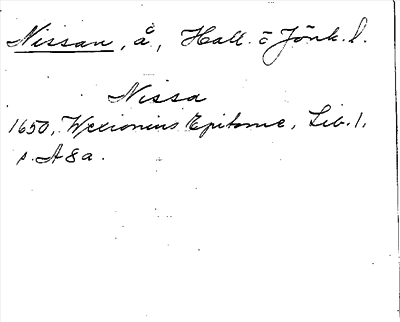 Nissan, å, Hall. o Jönk. l.
Nissa
1650, Wexionius Epitome, Lib. 1,
s. A8a.